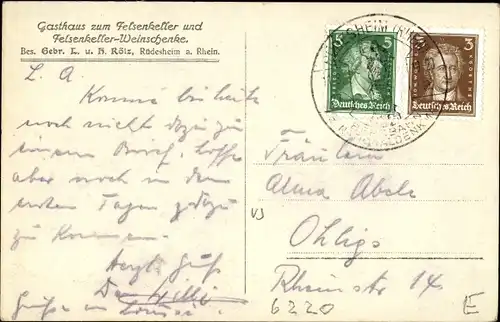 Gasthaus zum Felsenkeller und
Felsenkeller-Weinschenke.
Bes. Gebr. L. u. H. Rölz, Rüdesheim a. Rhein.
L. A.
Komme bis heute
noch nicht dazu zu
einem Brief, hoffe
aber noch in den
ersten Tagen dazu
zu kommen.
Herzl. Gruß
Dein Willi
Grüße an
5 5
Deutsches Reich
3
Deutsches Reich
Fräulein
Alma Abele
VJ
Ohligs
Rheinstr 14.
6220
E